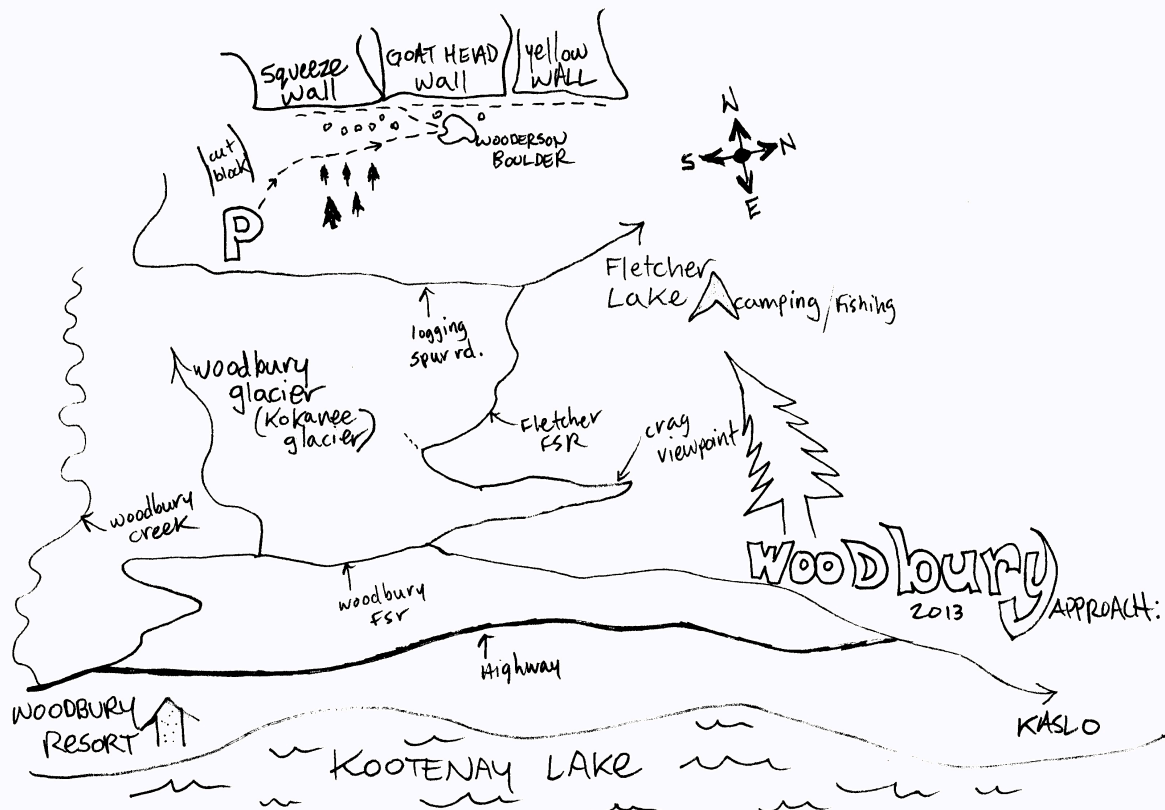 Squeeze
Wall
GOAT HEAD
Wall
Yellow
WALL
WOODERSON
BOULDER
cut
block
P
N
S
N
E
Fletcher
Lake
camping/Fishing
logging
spur rd.
Woodbury
glacier
(Kokanee
glacier)
Fletcher
FSR
crag
viewpoint
woodbury
creek
woodbury
fsr
Woodbury
2013
APPROACH:
Highway
WOODBURY
RESORT
KASLO
KOOTENAY LAKE